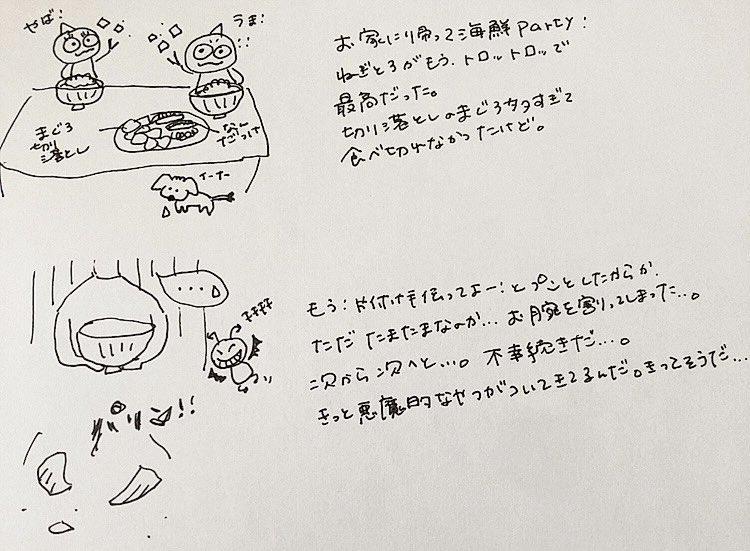 やば!
うま!
まぐろ
切り
落とし
なん
だっけ
イーナー
お家に帰って海鮮party!
ねぎとろがもう、トロットロッで
最高だった。
切り落としのまぐろ多すぎて
食べ切れなかったけど。
....
キキキ
パリン!!
もう!片付け手伝ってよー!とプンとしたからか、
ただ たまたまなのか… お腕を割ってしまった…。
次から次へと…。不幸続きだ…。
きっと悪魔的なやつがついてきてるんだ。きってそうだ…